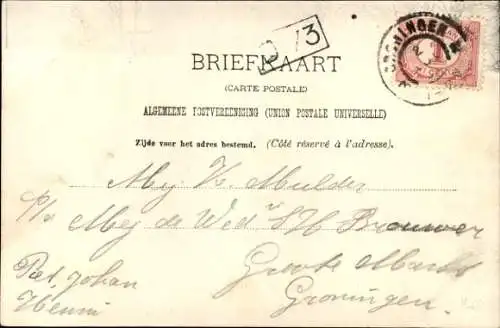 GRONINGEN
1
BRIEFKAART
(CARTE POSTALE)
ALGEMEENE POSTVEREENIGING (UNION POSTALE UNIVERSELLE)
Zijde voor het adres bestemd. (Côté réservé à l'adresse).
Mej K. Mulder
p/a Mej de Wed S H Brouwer
Groote Markt
Groningen.
Piet, Johan
Henni